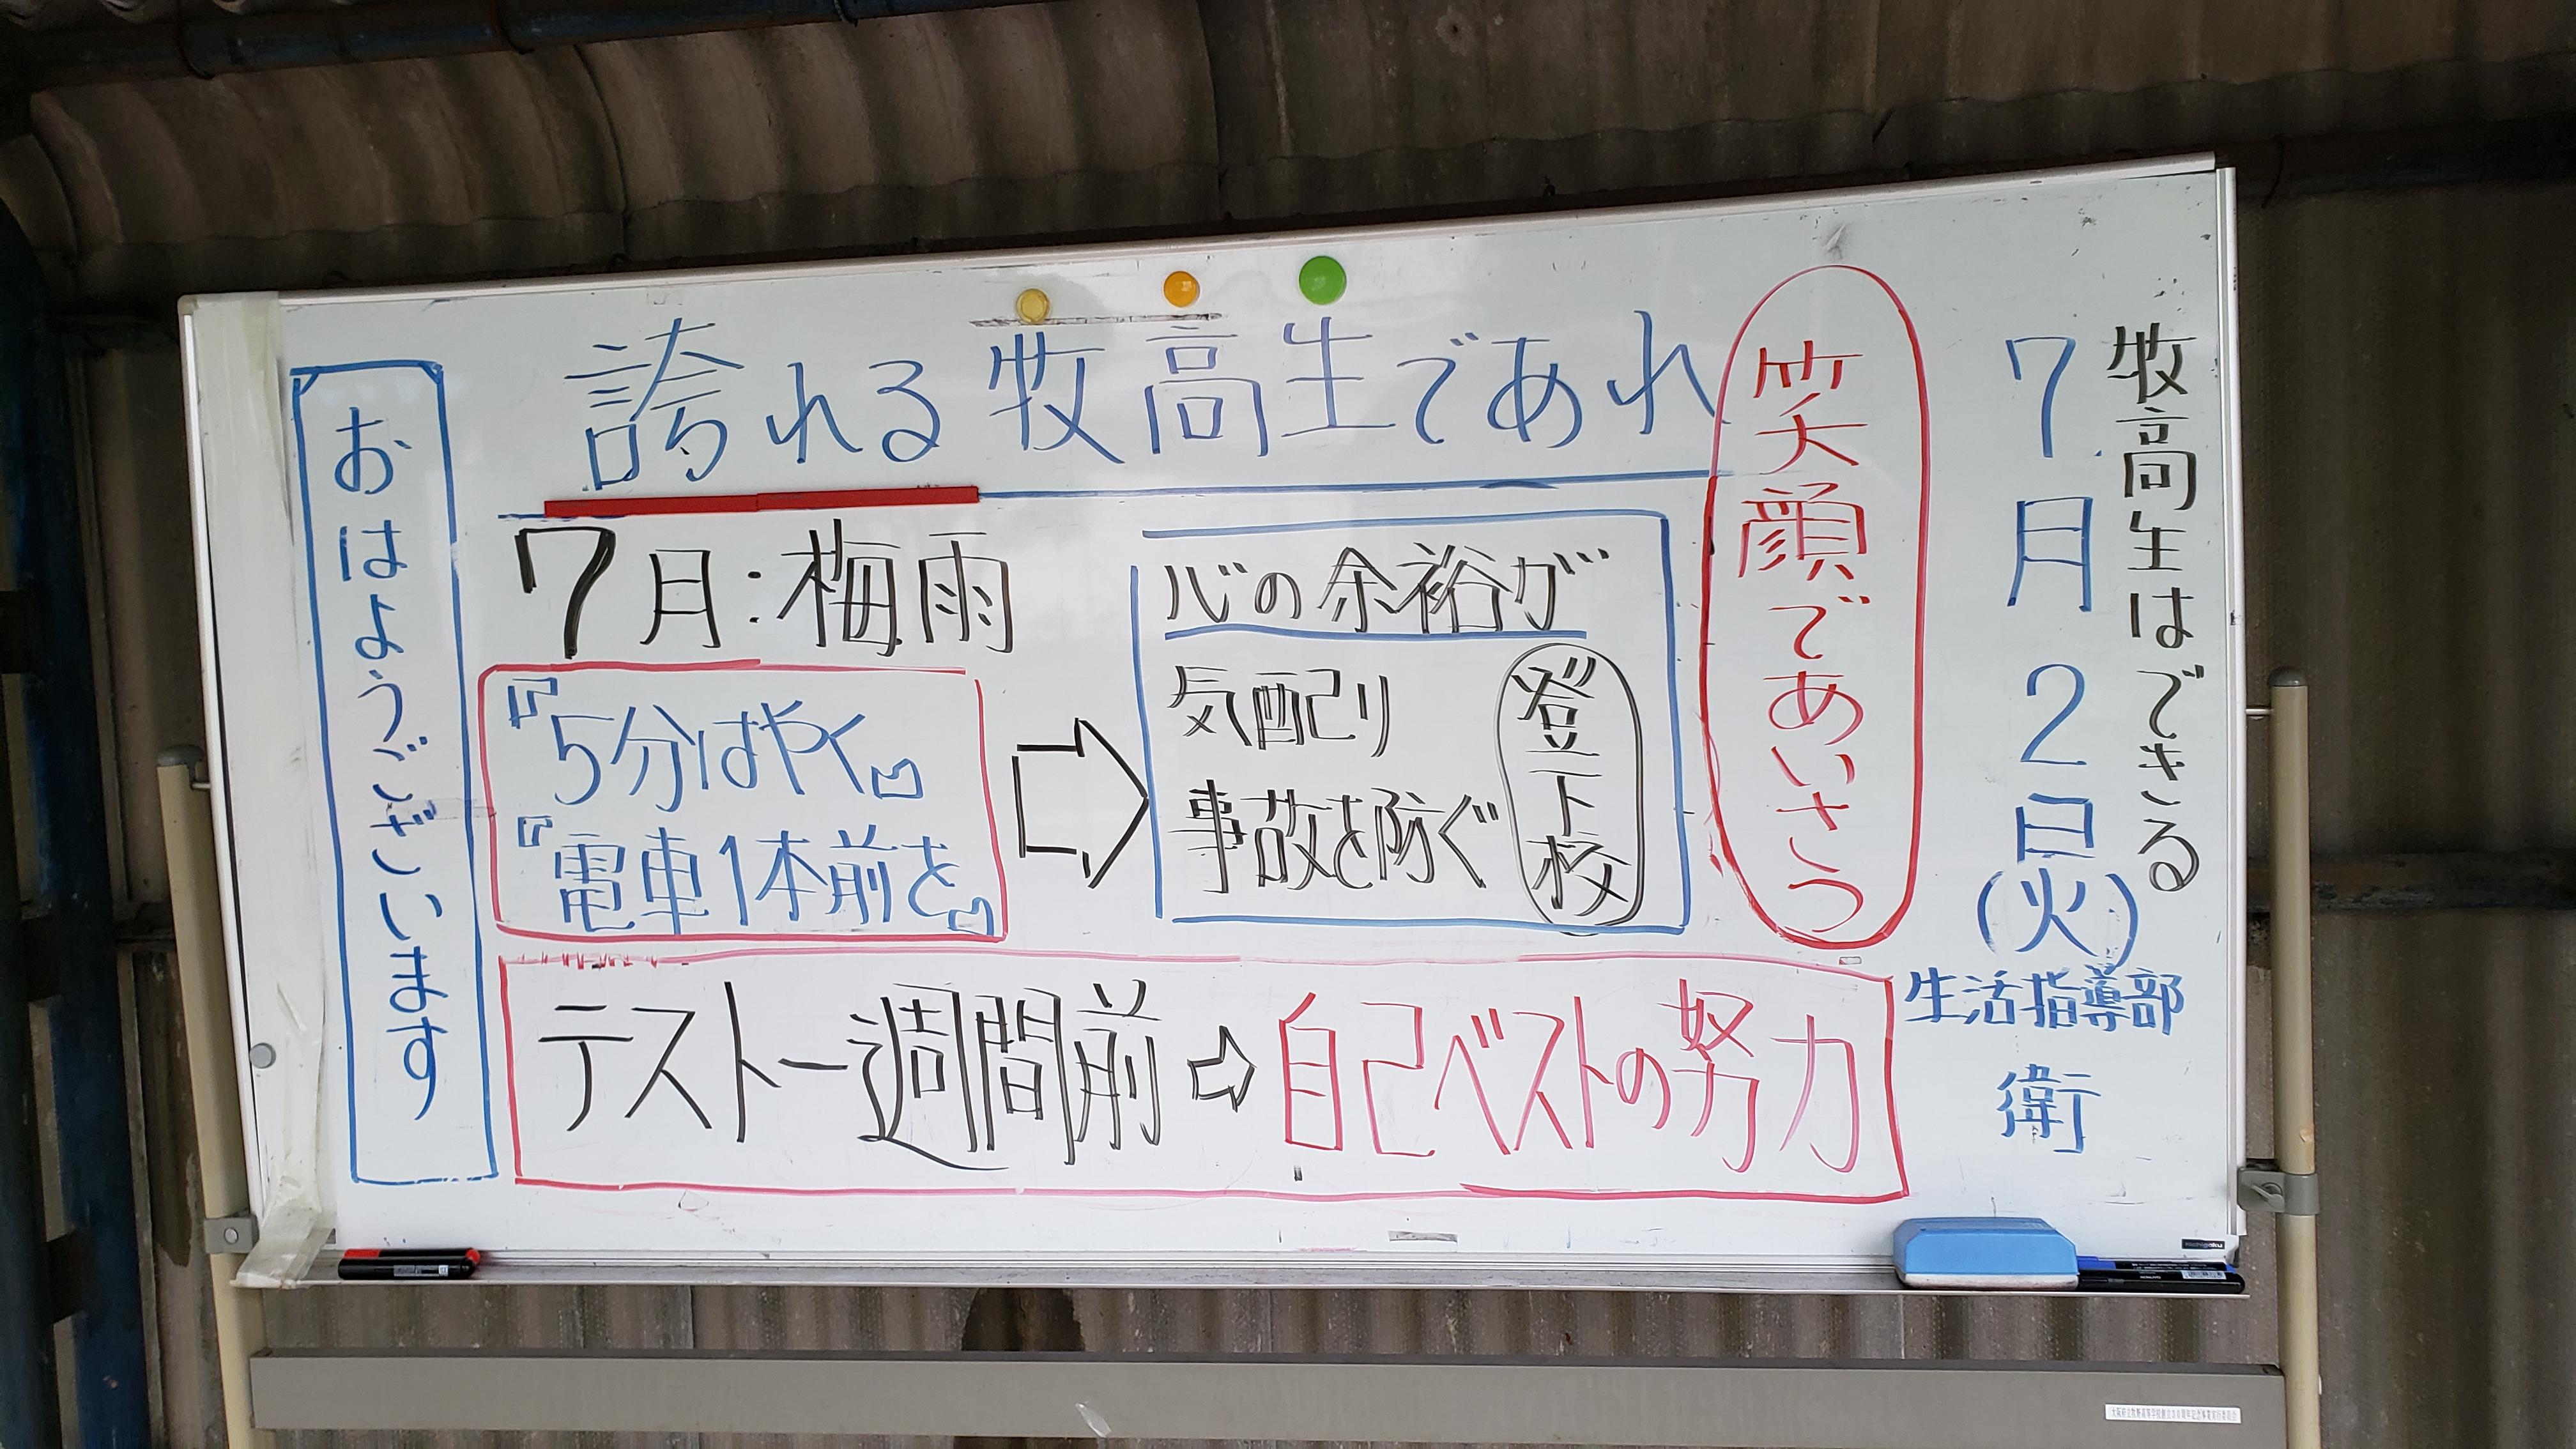 牧高生はできる
7月2日(火)
生活指導部
衛
笑顔であいさつ
誇れる牧高生であれ
7月:梅雨
『5分はやく』
『電車1本前を』
⇨
心の余裕が
気配り
事故を防ぐ
登下校
テスト一週間前⇨自己ベストの努力
おはようございます